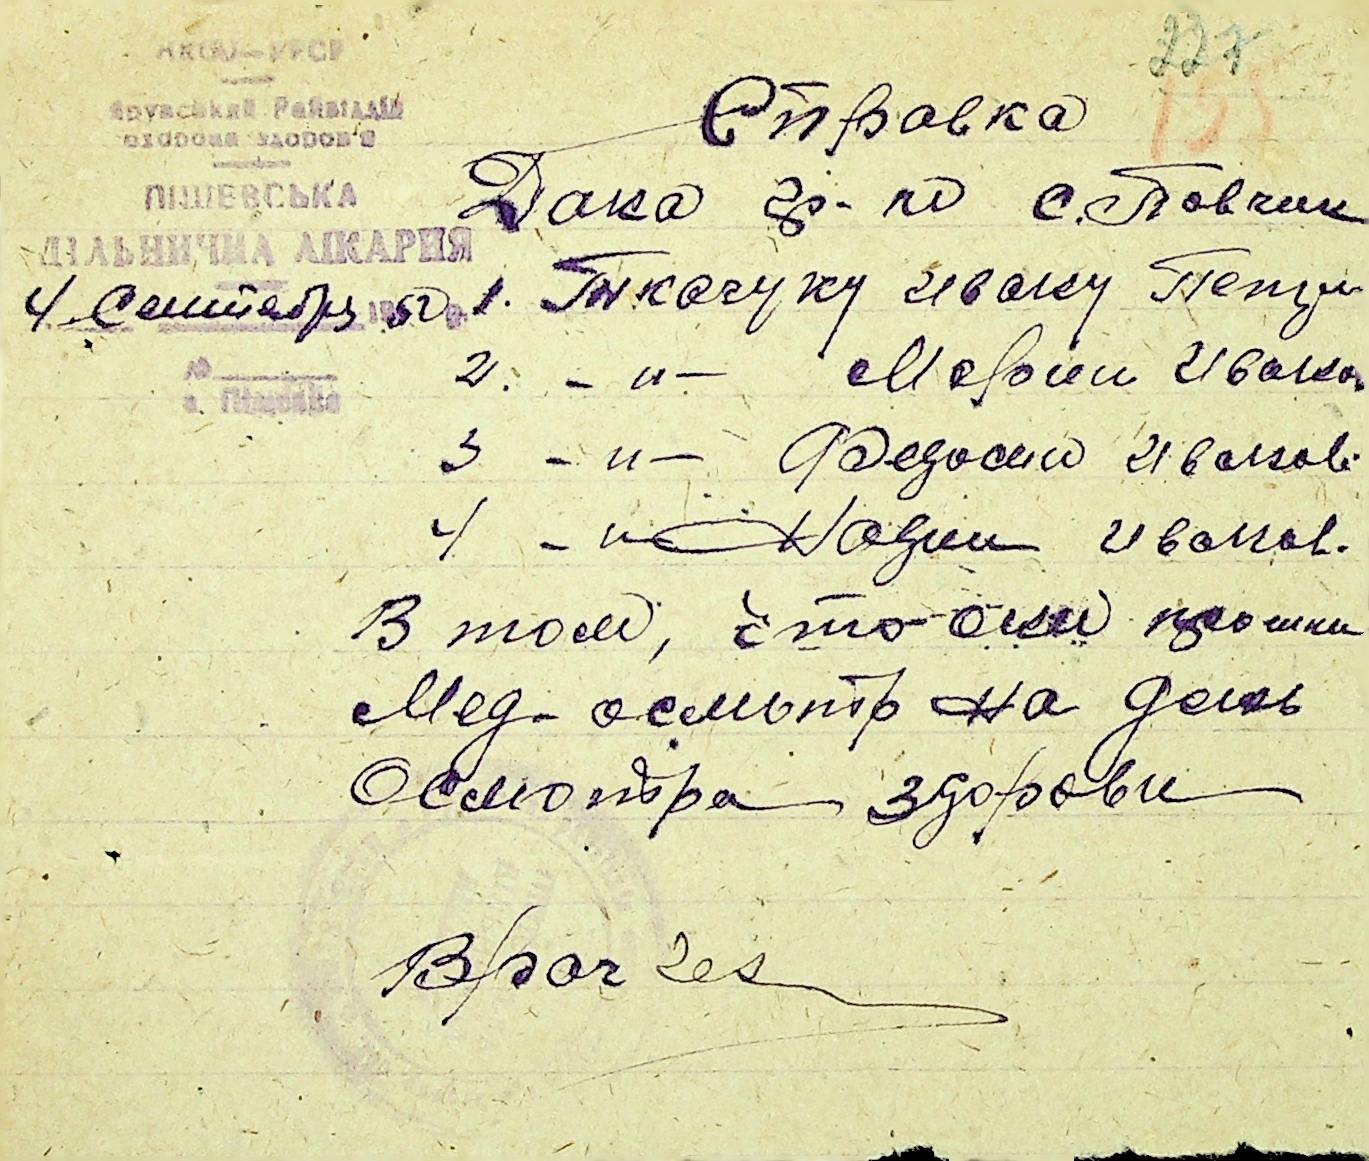 227
Справка
Ярунський Райвідділ
охорони здоров'я
ПІЩЕВСЬКА
ДІЛЬНИЧНА ЛІКАРНЯ
4 Сентября 1950 р.
№
с. Піщевка
Дана гр-но с. Повчик
1. Ткачуку Ивану Петр
2. -"- Марии Ивано
3 -"- Федосии Иванов.
4 -"- Надии Иванов.
В том, что они прошли
Мед-осмотр на день
Осмотра здоровы
Врач